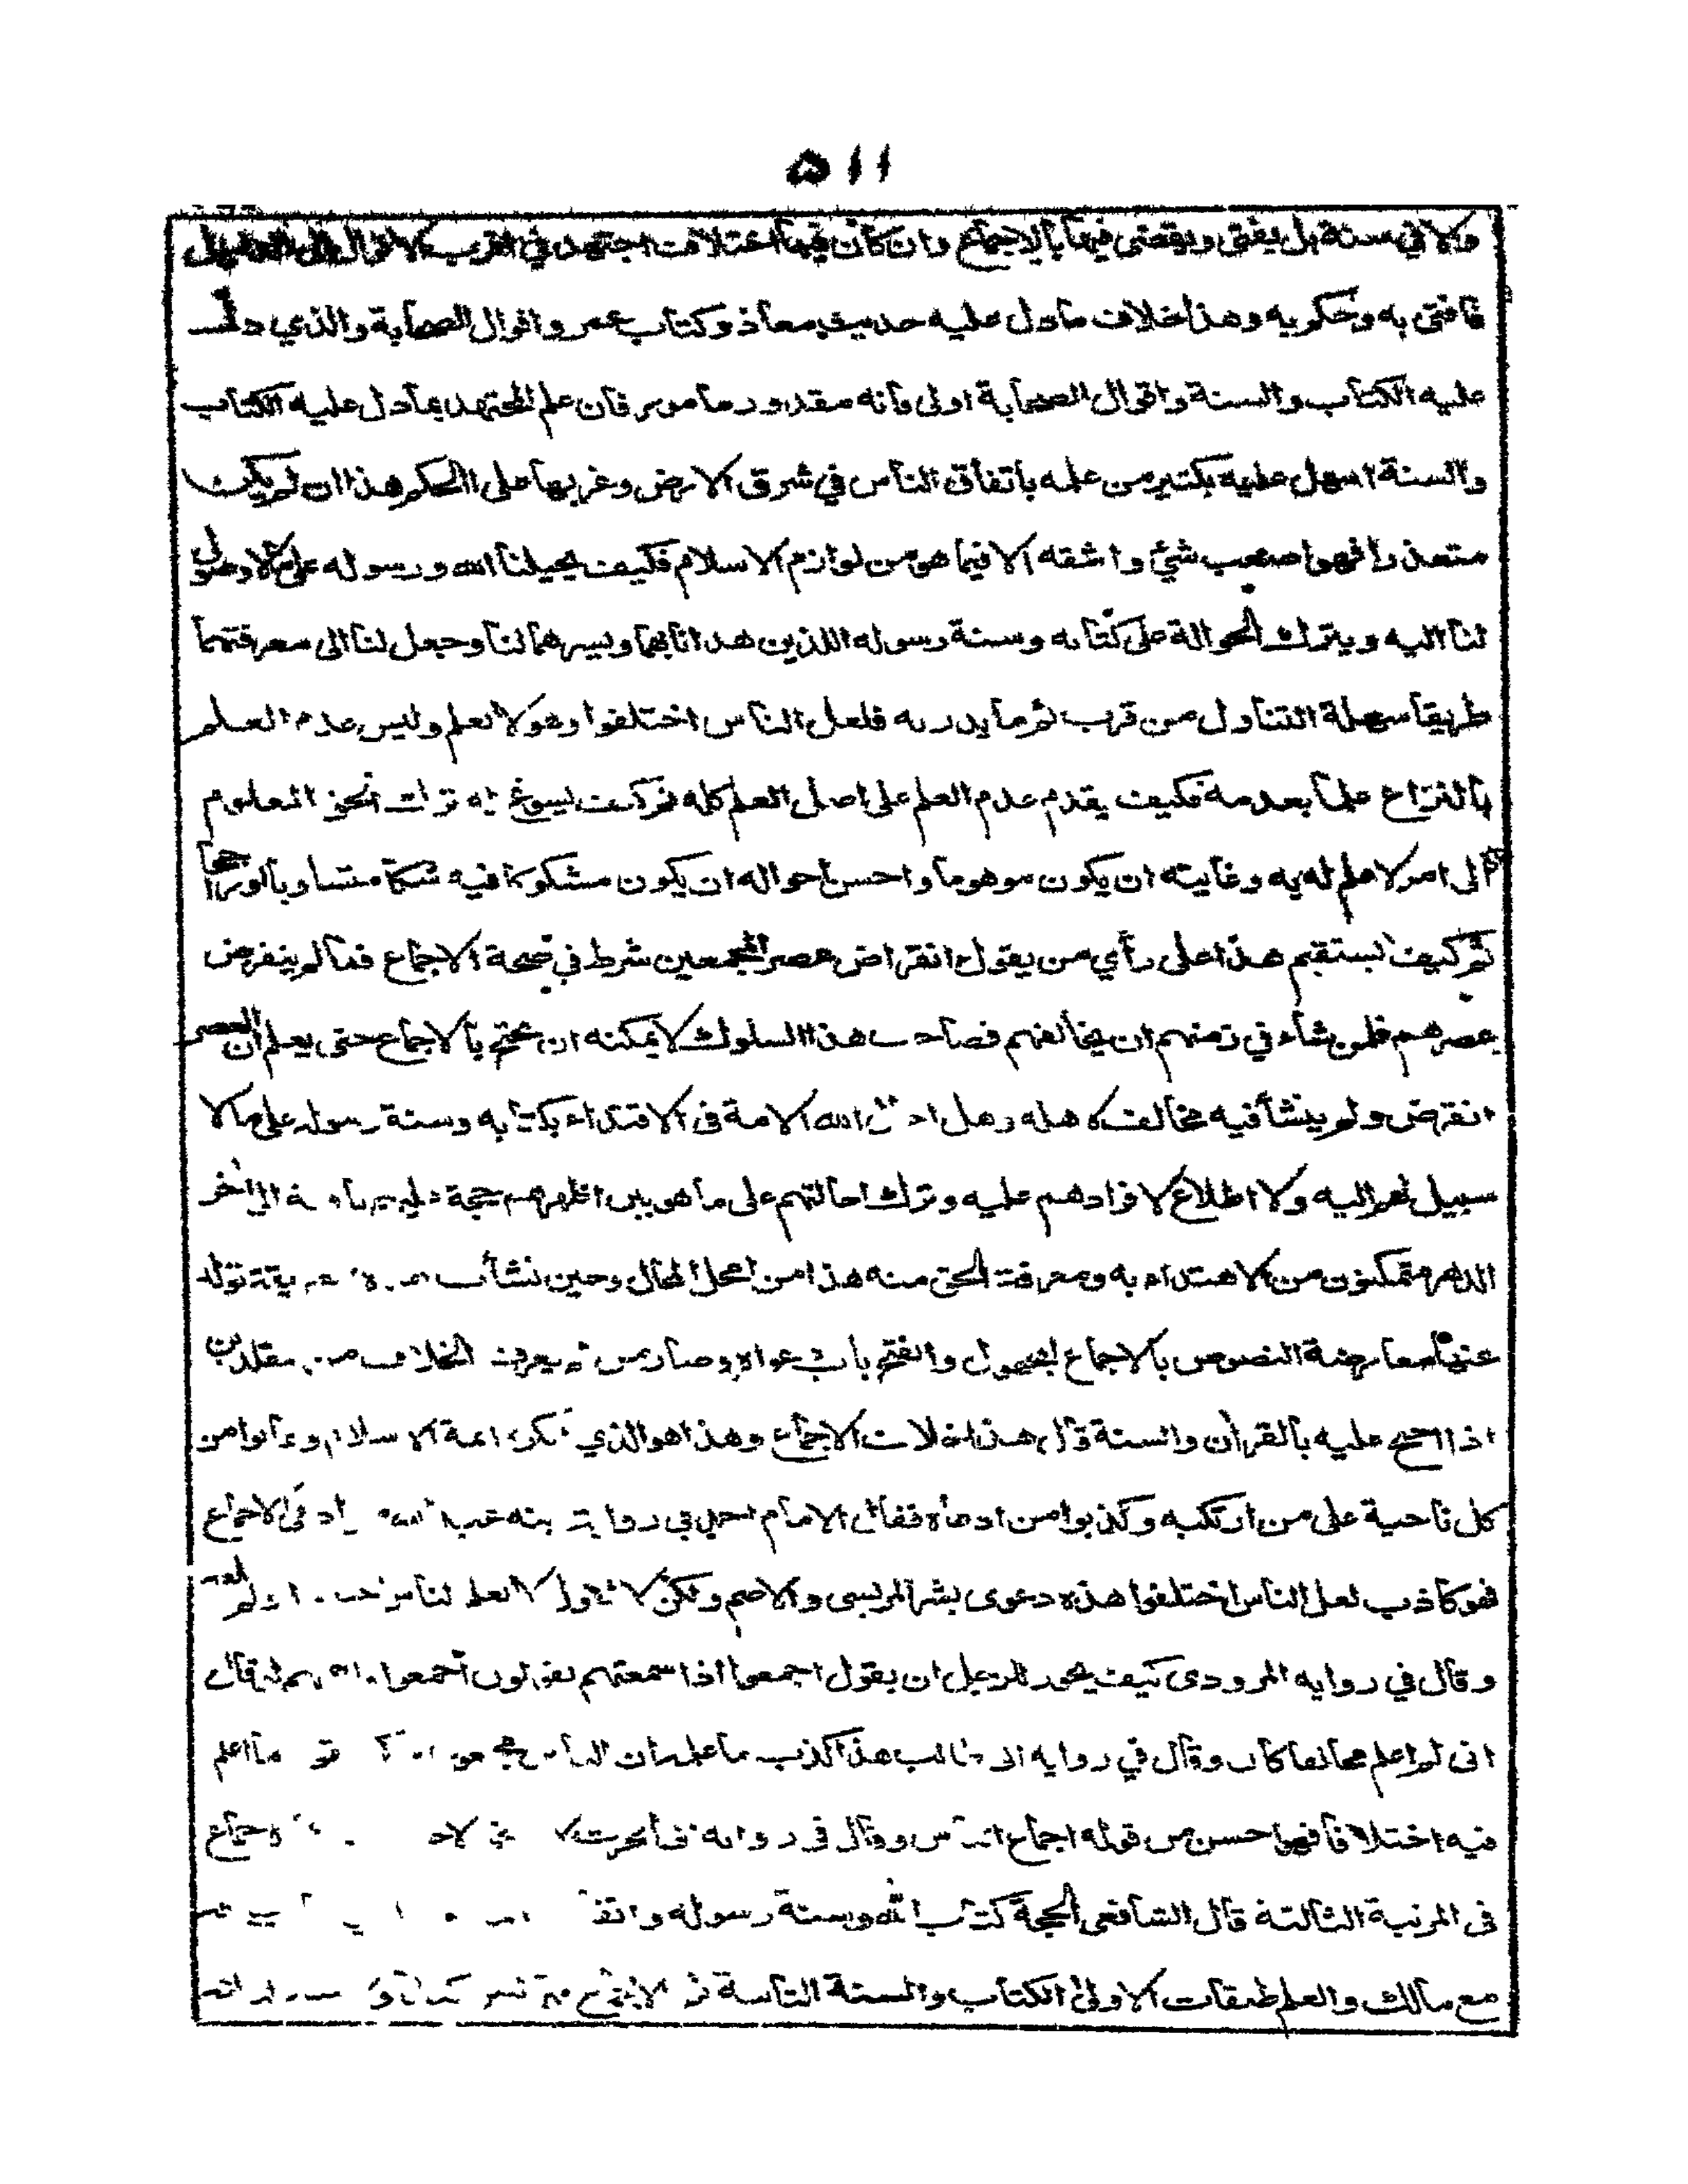 ۵۱۱
ولا في سنة بل يفتى ويقضى فيها بالاجماع وان كان فيها اختلاف اجتهد في اقرب الاقوال الى الدليل
فافتى به وحكم به وهذا خلاف ما دل عليه حديث معاذ وكتاب عمر واقوال الصحابة والذي دل
عليه الكتاب والسنة واقوال الصحابة اولى فانه مقدور مامور فان علم المجتهد بما دل عليه الكتاب
والسنة اسهل عليه بكثير من علمه باتفاق الناس في شرق الارض وغربها على الحكم هذا ان لم يكن
متعذرا فهو اصعب شيئ واشقه الا فيما هو من لوازم الاسلام فكيف يحيلنا الله ورسوله على ما لا وصول
لنا اليه ويترك الحوالة على كتابه وسنة رسوله اللذين هدانا بهما ويسرهما لنا وجعل لنا الى معرفتهما
طريقا سهلة التناول من قرب ثم ما يدريه فلعل الناس اختلفوا وهو لا يعلم وليس عدم العلم
بالنزاع علما بعدمه فكيف يقدم عدم العلم على اصل العلم كله ثم كيف يسوغ له ترك الحق المعلوم
الى امر لا علم له به وغايته ان يكون موهوما واحسن احواله ان يكون مشكوكا فيه شكا متساويا او راجحا
ثم كيف يستقيم هذا على رأي من يقول انقراض عصر المجمعين شرط في صحة الاجماع فما لم ينقرض
عصرهم فلمن نشاء في زمنهم ان يخالفهم فصاحب هذا السلوك لا يمكنه ان يحتج بالاجماع حتى يعلم ان العصر
انقرض ولم ينشأ فيه مخالف لاهله وهل احال الله الامة في الاقتداء بكتابه وسنة رسوله على ما لا
سبيل لهم اليه ولا اطلاع لافرادهم عليه وترك احالتهم على ما هو بين اظهرهم حجة عليهم باقية الى اخر
الدهر متمكنون من الاهتداء به ومعرفة الحق منه هذا من امحل المحال وحين نشأت هذه الطريقة تولد
عنها معارضة النصوص بالاجماع المجهول وانفتح باب دعواه وصار من لم يعرف الخلاف من المقلدين
اذا احتج عليه بالقران والسنة قال هذا خلاف الاجماع وهذا هو الذي انكره ائمة الاسلام وعابوا من
كل ناحية على من ارتكبه وكذبوا من ادعاه فقال الامام احمد في رواية ابنه عبد الله من ادعى الاجماع
فهو كاذب لعل الناس اختلفوا هذه دعوى بشر المريسى والاصم ولكن لا نقول لا نعلم الناس
وقال في رواية المروذى كيف يجوز للرجل ان يقول اجمعوا اذا سمعتهم يقولون اجمعوا فاتهمهم لو قال
انى لم اعلم مخالفا كان وقال في رواية ابى طالب هذا كذب ما علمه ان الناس مجمعون ما اعلم
فيه اختلافا فهو احسن من قوله اجماع الناس وقال في رواية ابى الحرث لا اجماع
فى المرتبة الثالثة قال الشافعى الحجة كتاب الله وسنة رسوله واتفاق
مع مالك والعلم طبقات الاولى الكتاب والسنة الثانية ثم الاجماع فيما ليس كتابا ولا سنة